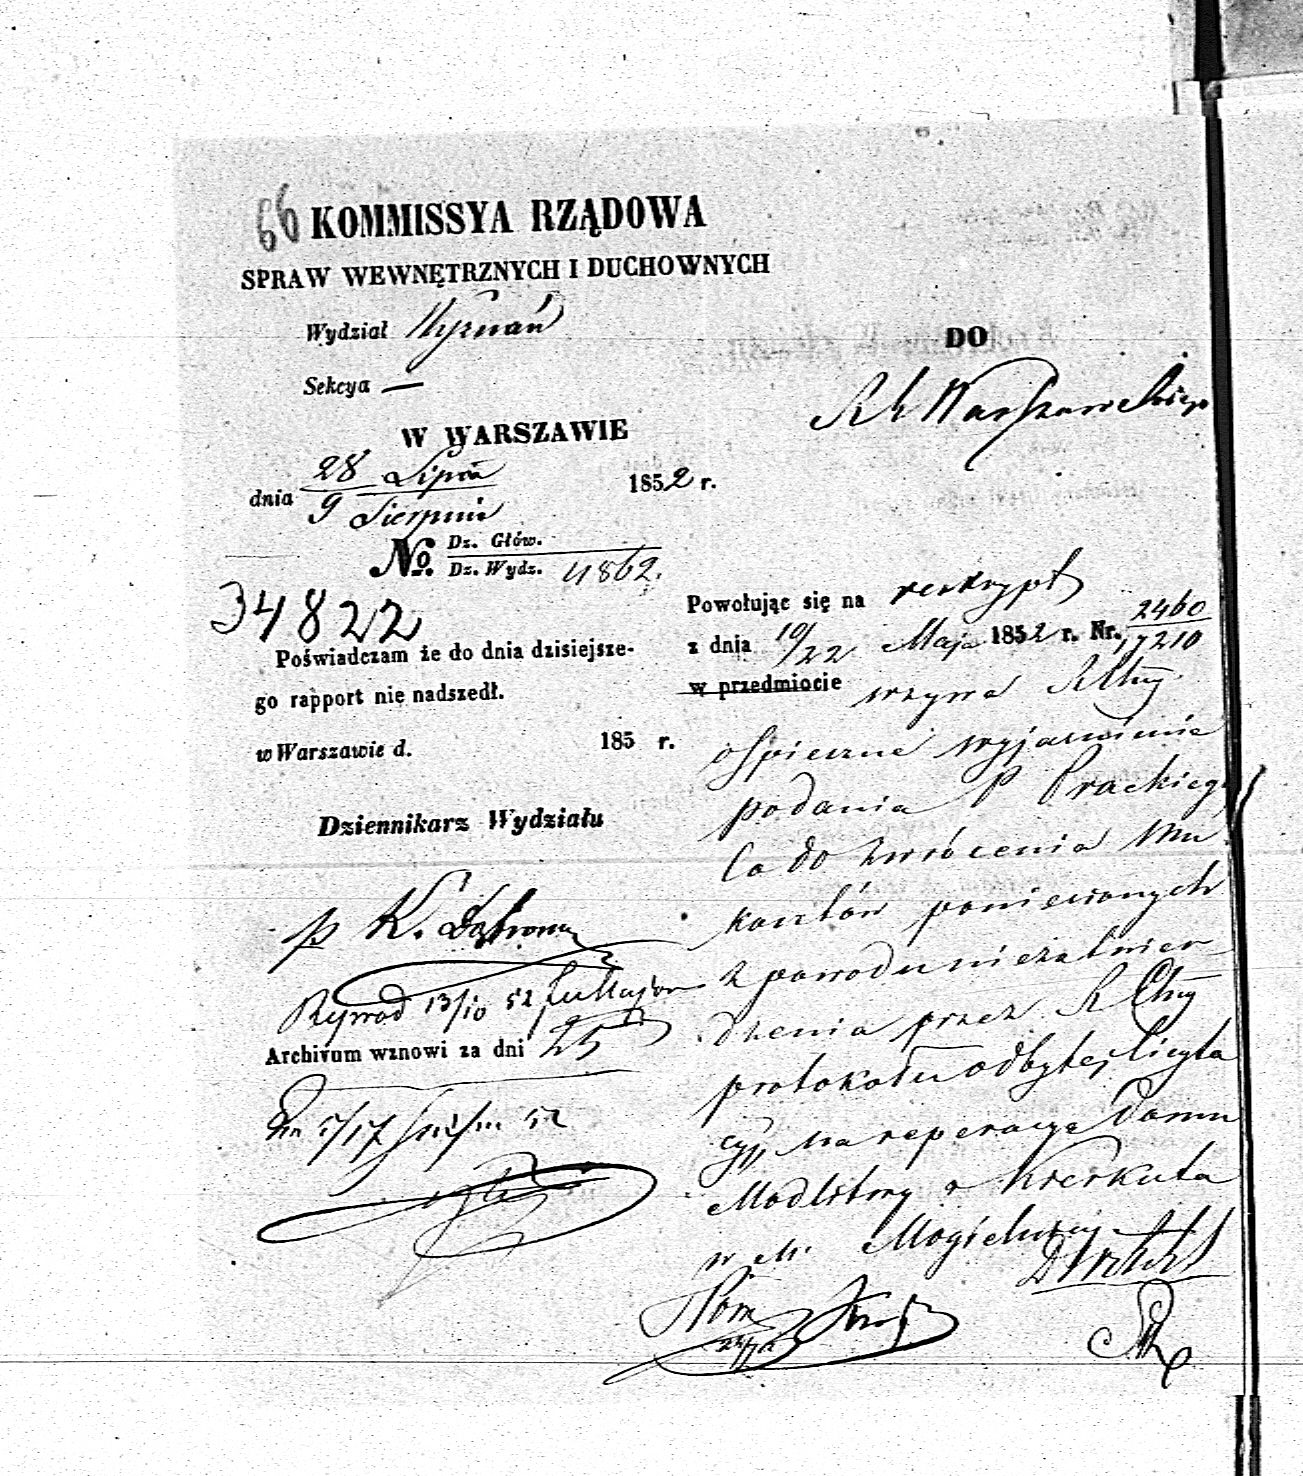 66 KOMMISSYA RZĄDOWA
SPRAW WEWNĘTRZNYCH I DUCHOWNYCH
Wydział Wyznań
Sekcya —
W WARSZAWIE
dnia 28 Lipca / 9 Sierpnia 1852 r.
No. Dz. Głów. / Dz. Wydz. 4862.
34822
Poświadczam że do dnia dzisiejsze-
go rapport nie nadszedł.
w Warszawie d. 185 r.
Dziennikarz Wydziału
K.
13/10 52
Archivum wznowi za dni 25
52
DO
Warszawskiego
Powołując się na reskrypt
z dnia 10/22 Maja 1852 r. Nr. 2460 / 17210
w przedmiocie wzywa
o spieszne wyjaśnienie
podania P Prackiego
co do zwrócenia mu
kosztów poniesionych
z powodu niezatwier-
dzenia przez R
protokołu odbytej licyta
cyj na reperacyę Domu
Modlitwy i Kierkuta
w M. Mogielnicy